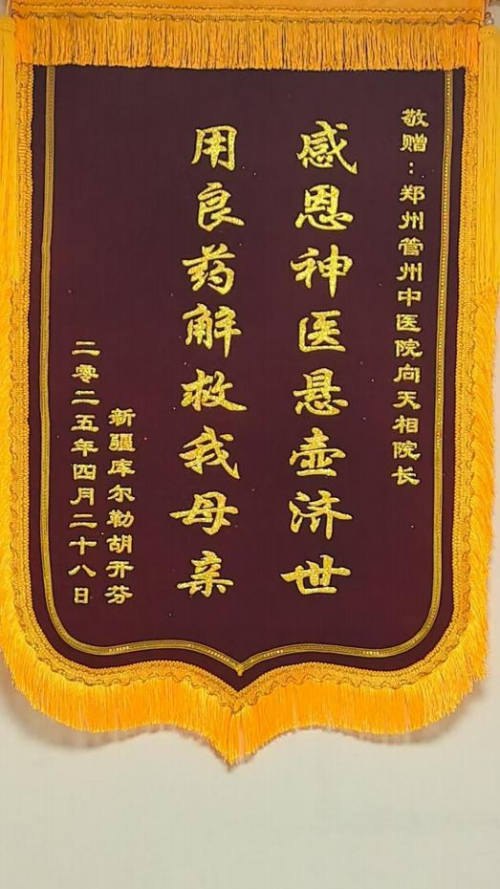 敬赠：郑州管州中医院向天相院长
感恩神医悬壶济世
用良药解救我母亲
新疆库尔勒胡开芬
二零二五年四月二十八日